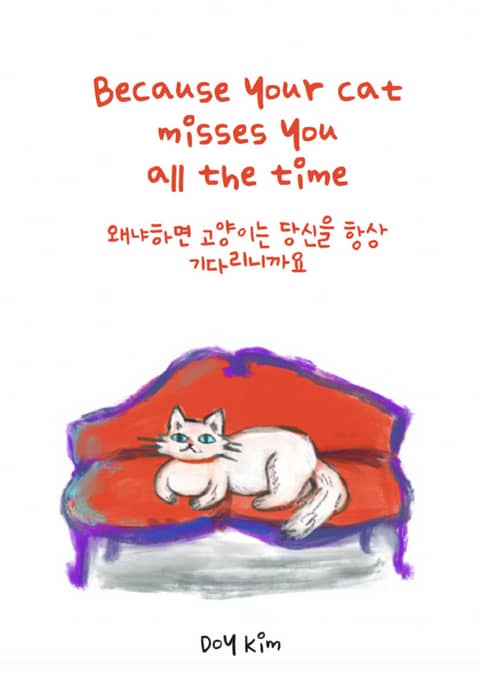 Because your cat
misses you
all the time
왜냐하면 고양이는 당신을 항상
기다리니까요
Doy Kim